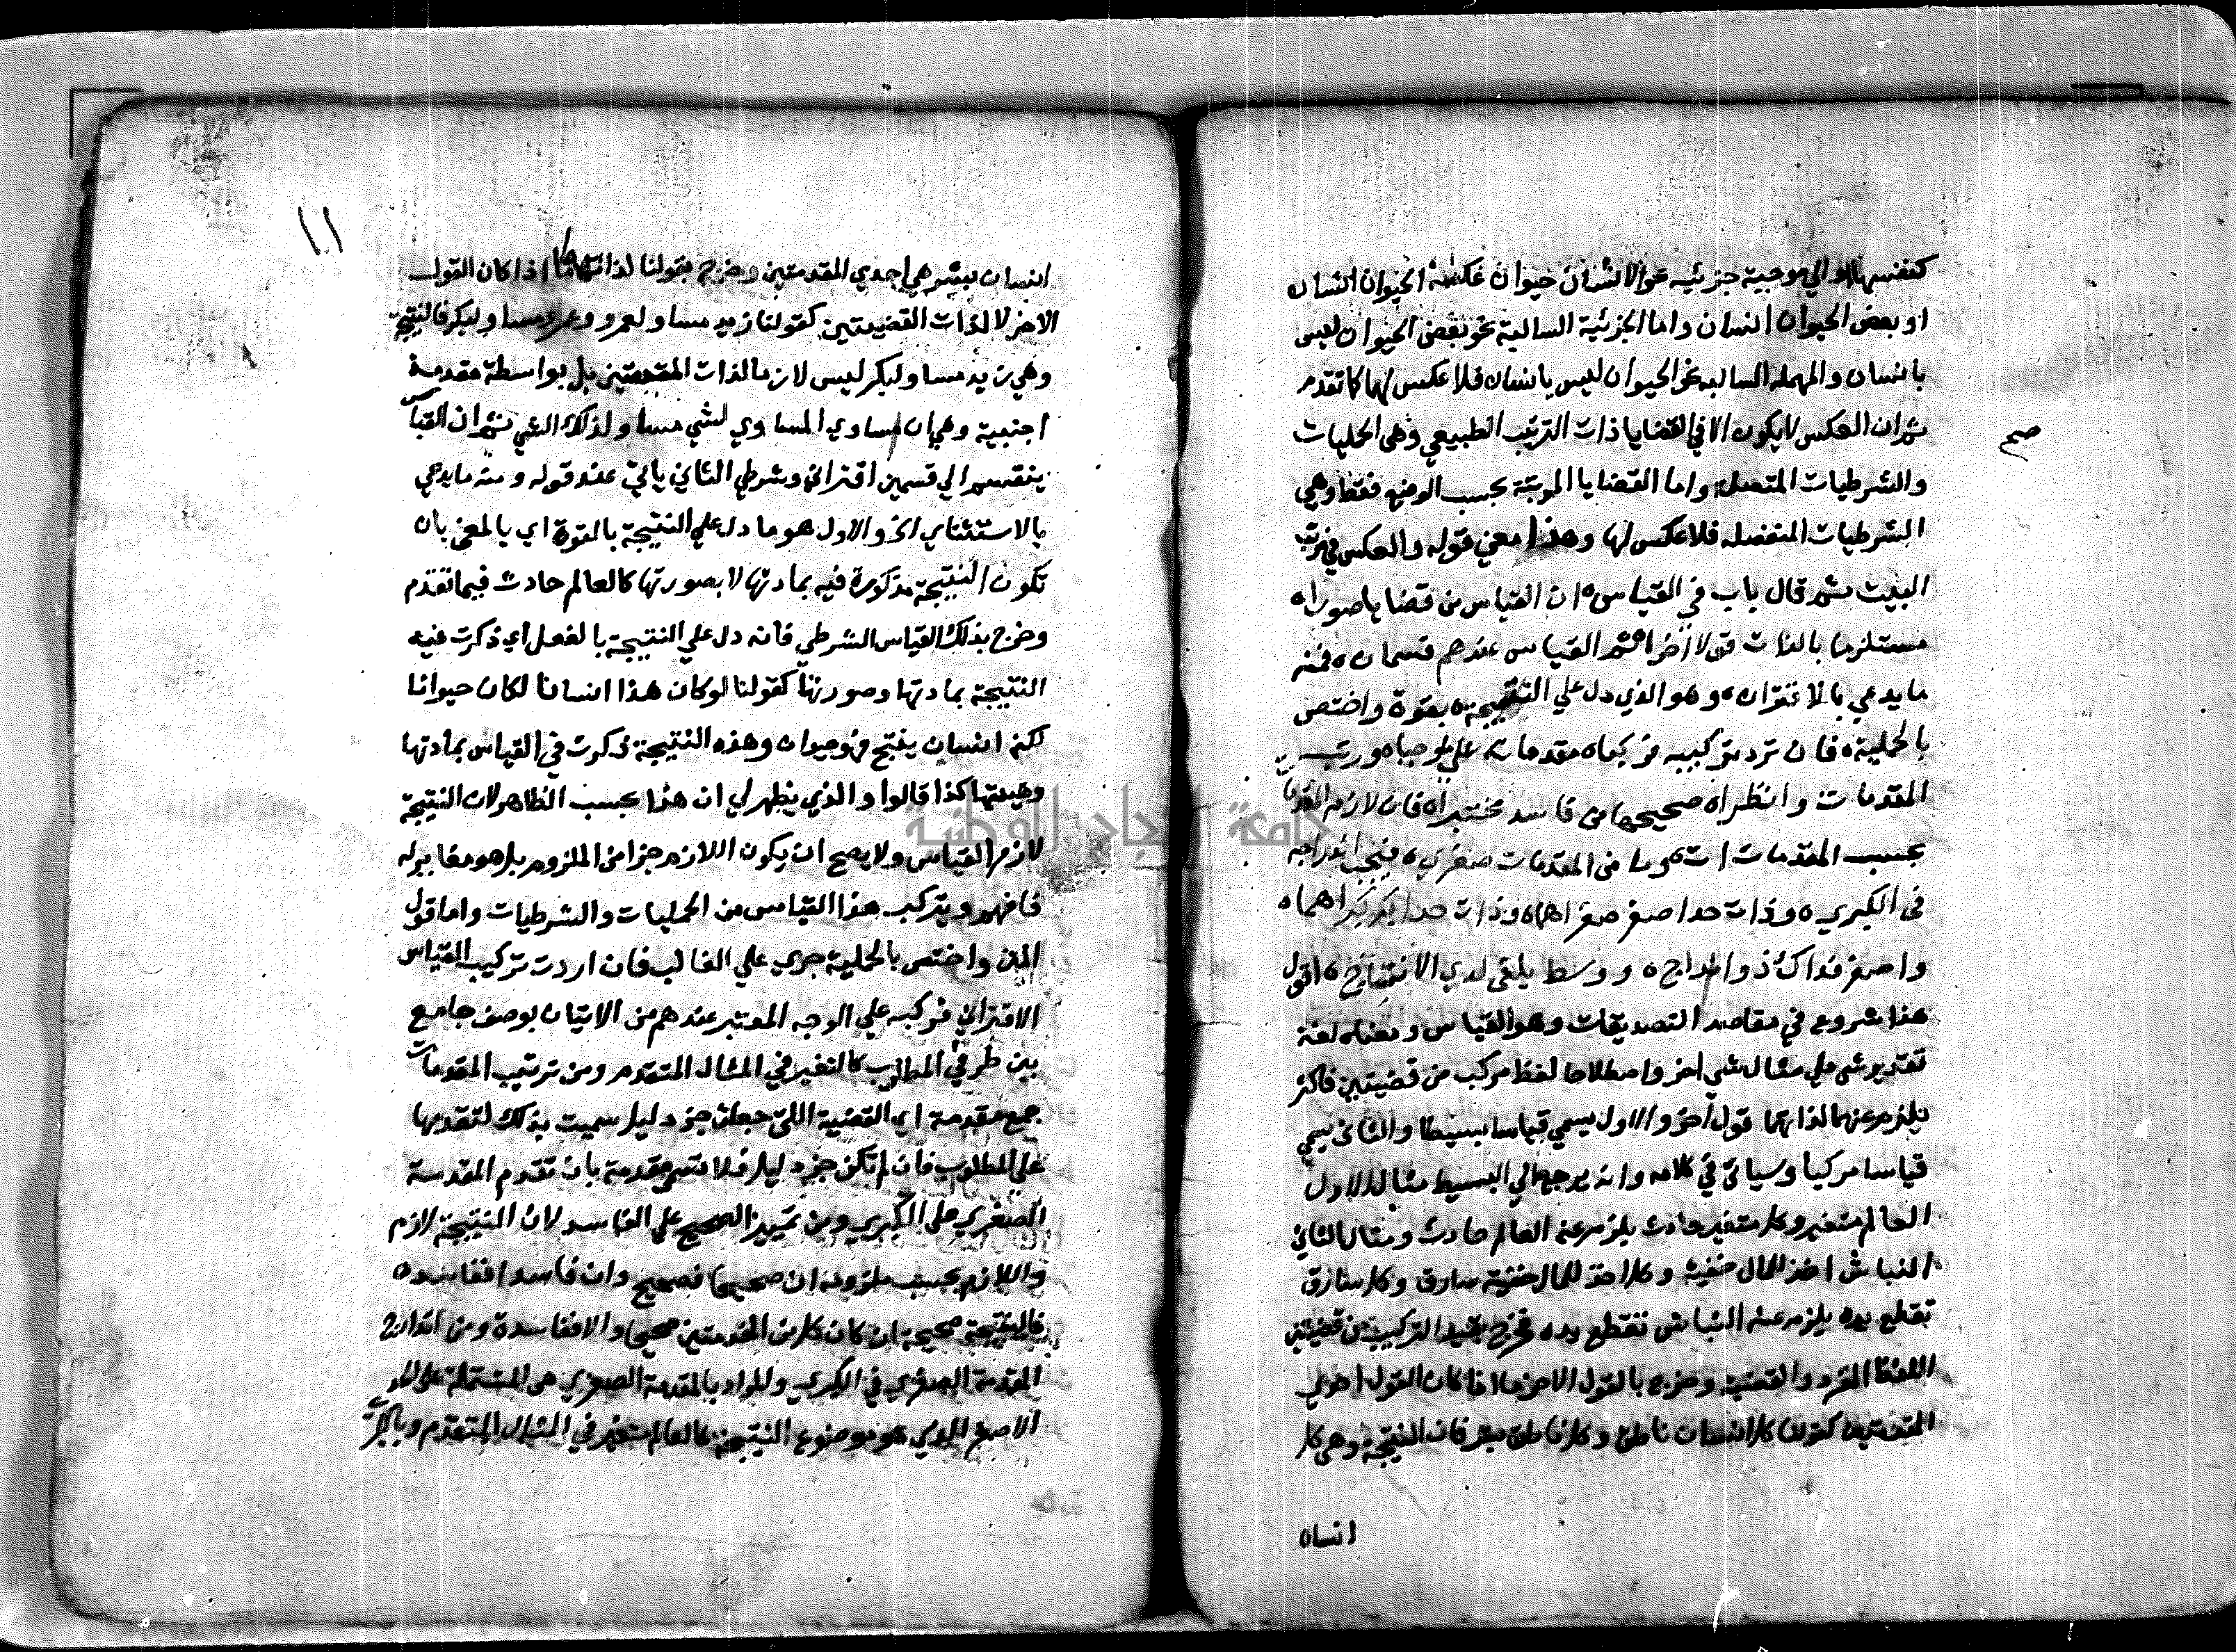 كنفسها او الي موجبة جزئيه نحو الانسان حيوان عكسه الحيوان انسان
او بعض الحيوان انسان واما الجزئية السالبة نحو بعض الحيوان ليس
بانسان والمهمله السالبه نحو الحيوان ليس بانسان فلا عكس لها كما تقدم
ثم ان العكس لا يكون الا في القضايا ذات الترتيب الطبيعي وهي الحمليات
صح
والشرطيات المتصلة واما القضايا المرتبة بحسب الوضع فقط وهي
الشرطيات المنفصله فلا عكس لها وهذا معني قوله والعكس في مرتب
البيت ثم قال باب في القياس ان القياس من قضايا صورا
مستلزما بالذات قولا اخرا ثم القياس عندهم قسمان فمنه
ما يدعي بالاقتران وهو الذي دل علي النتيجة بقوة واختص
بالحملية فان ترد تركيبه فركبا مقدماته علي ما وجبا ورتب
المقدمات وانظرا صحيحها من فاسد مختبرا فان لازم المقدمات
بحسب المقدمات ات وما من المقدمات صغري فيجب اندراجه
في الكبري وذات حد اصغر صغراهما وذات حد اكبر كبراهما
واصغر فذاك ذو اندراج ووسط يلغي لدي الانتاج اقول
هذا شروع في مقاصد التصديقات وهو القياس ومعناه لغة
تقدير شي علي مثال شي اخر واصطلاحا لفظ مركب من قضيتين فاكثر
يلزم عنهما لذاتهما قول اخر والاول يسمي قياسا بسيطا والثاني يسمي
قياسا مركبا وسياتي في كلامه وانه يرجع الي البسيط مثال الاول
العالم متغير وكل متغير حادث يلزم عنه العالم حادث ومثال الثاني
النباش اخذ للمال خفية وكل اخذ للمال خفية سارق وكل سارق
تقطع يده يلزم عنه النباش تقطع يده فخرج بقيد التركيب من قضيتين
اللفظ المفرد والقضية وخرج بالقول الاخر ما اذا كان القول احدي
المقدمتين كقولنا كل انسان ناطق وكل ناطق بشر فان النتيجة وهي كل
انسان
١١
انسان بشر هي احدي المقدمتين وخرج بقولنا لذاتهما ما اذا كان القول
الاخر لا لذات القضيتين كقولنا زيد مساو لعمرو وعمرو مساو لبكر فالنتيجة
وهي زيد مساو لبكر ليس لازما لذات المقدمتين بل بواسطة مقدمة
اجنبية وهي ان مساوي المساوي لشي مساو لذلك الشي ثم ان القياس
ينقسم الي قسمين اقتراني وشرطي الثاني ياتي عند قوله ومنه ما يدعي
بالاستثنائي اخ والاول هو ما دل علي النتيجة بالقوة اي بالمعني بان
تكون النتيجة مذكورة فيه بمادتها لا بصورتها كالعالم حادث فيما تقدم
وخرج بذلك القياس الشرطي فانه دل علي النتيجة بالفعل اي ذكرت فيه
النتيجة بمادتها وصورتها كقولنا لو كان هذا انسانا لكان حيوانا
لكنه انسان ينتج فهو حيوان وهذه النتيجة ذكرت في القياس بمادتها
وهيئتها كذا قالوا والذي يظهر لي ان هذا بحسب الظاهر لان النتيجة
لازم القياس ولا يصح ان يكون اللازم جزا من الملزوم بل هو مغاير له
فافهم ويتركب هذا القياس من الحمليات والشرطيات واما قول
المتن واختص بالحملية جري علي الغالب فان اردت تركيب القياس
الاقتراني فركبه علي الوجه المعتبر عندهم من الاتيان بوصف جامع
بين طرفي المطلوب كالتغير في المثال المتقدم ومن ترتيب المقدمات
جمع مقدمة اي القضية اللتي جعلت جزء دليل سميت بذلك لتقدمها
علي المطلوب فان لم تكن جزء دليل فلا تسمي مقدمة بان تقدم المقدمة
الصغري علي الكبري ومن تمييز الصحيح علي الفاسد لان النتيجة لازم
واللازم بحسب ملزومه ان صحيحا فصحيح وان فاسدا ففاسد
فالنتيجة صحيحة ان كان كل من المقدمتين صحيحا والا ففاسدة ومن اندراج
المقدمة الصغري في الكبري والمراد بالمقدمة الصغري هي المشتملة علي الحد
الاصغر الذي هو موضوع النتيجة كالعالم متغير في المثال المتقدم وبالكبري